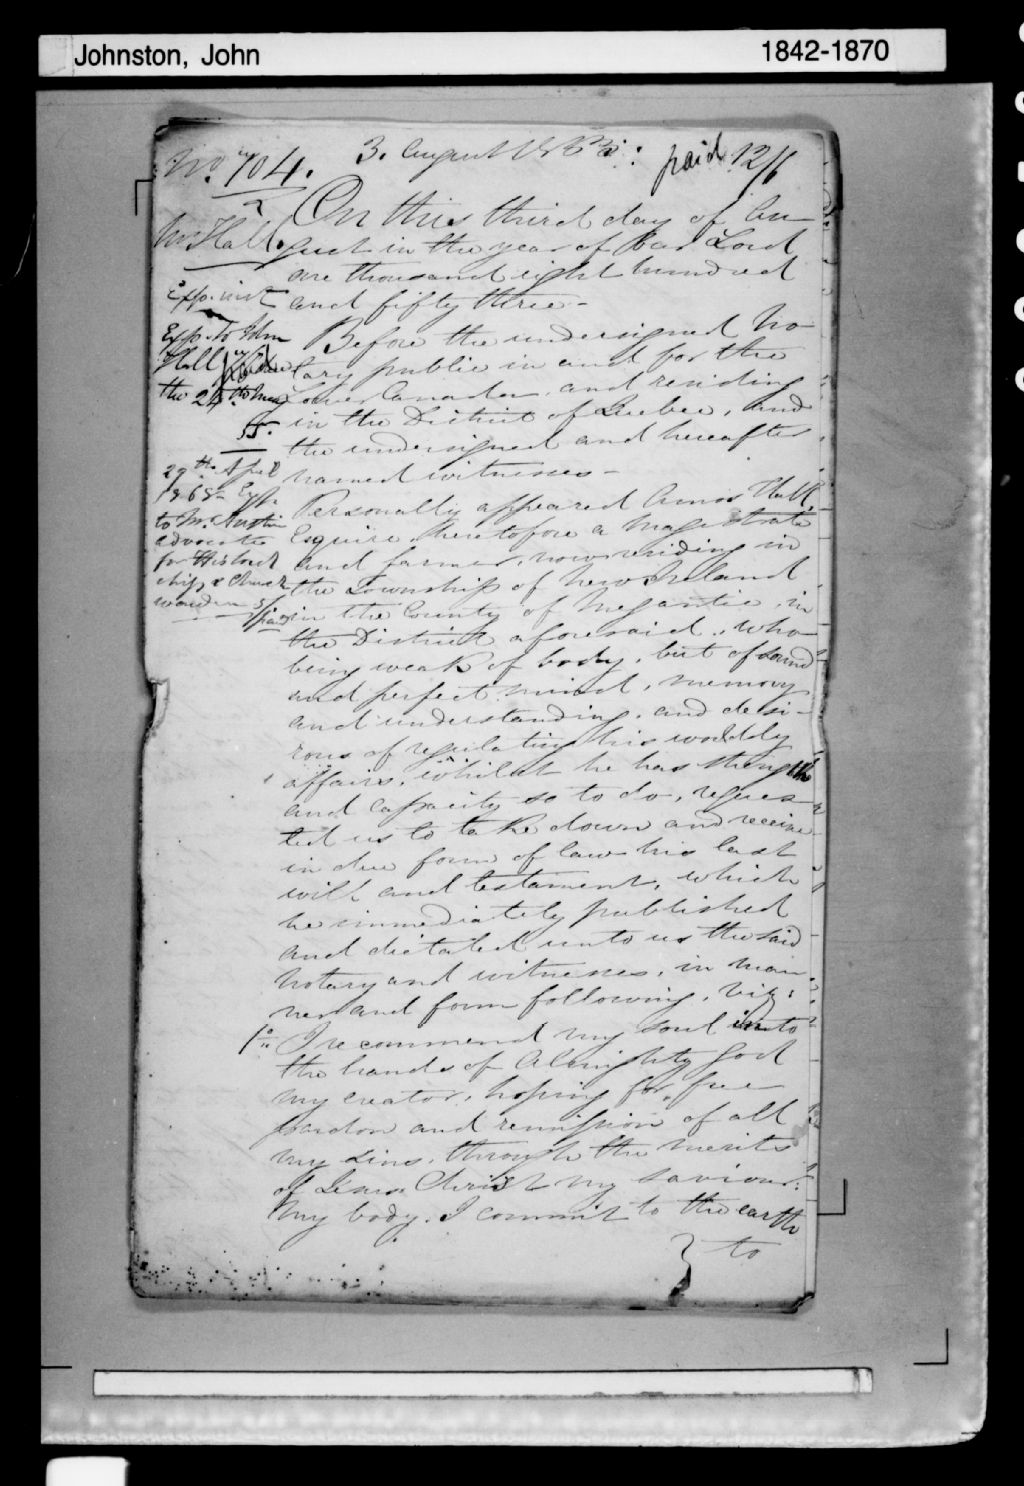 Johnston, John
1842-1870
No. 704.
3. August 1853:
paid 12/6
Mr Hall.
Exp. inst
Exp. to John
Hall
the 24th May
55.
29th April
1868 Exp
to Mr. Austin
advocate
for His Lord
ship & Church
warden 5/
paid
On this third day of Au
gust in the year of Our Lord
one thousand eight hundred
and fifty three -
Before the undersigned No
tary public in and for the
Lower Canada, and residing
in the District of Quebec, and
the undersigned and hereafter
named witnesses -
Personally appeared Amos Hall,
Esquire, heretofore a Magistrate
and farmer, now residing in
the Township of New Ireland
in the County of Megantic, in
the District aforesaid, who
being weak of body, but of sound
and perfect mind, memory
and understanding, and desi-
rous of regulating his worldly
affairs, whilst he has strength
and capacity so to do, reques
ted us to take down and receive
in due form of law his last
will and testament, which
he immediately published
and dictated unto us the said
Notary and witnesses, in man
ner and form following, viz:
1o. I recommend my soul into
the hands of Almighty God
my creator, hoping for free
pardon and remission of all
my sins, through the merits
of Jesus Christ my saviour:
My body, I commit to the earth
to